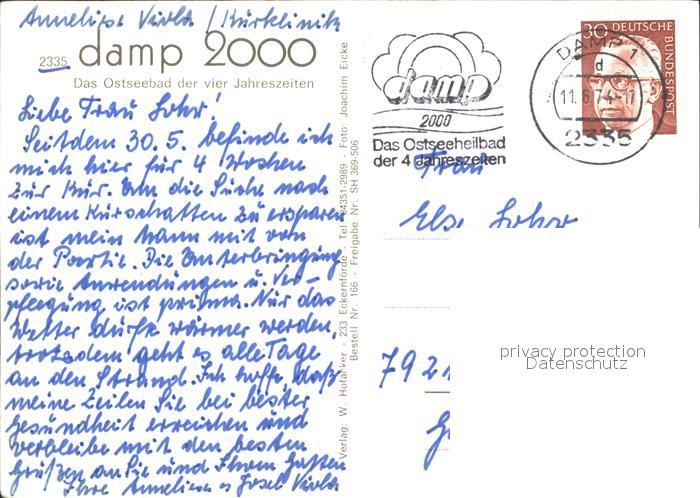 Anneliese / Kurklinik
2335 damp 2000
Das Ostseebad der vier Jahreszeiten
Liebe Frau Lohr!
Seit dem 30.5. befinde ich
mich hier für 4 Wochen
zur Kur. Um die Suche nach
einem Kurschatten zu ersparen
ist mein Mann mit von
der Partie. Die Unterbringung
sowie Anwendungen u. Ver-
pflegung ist prima. Nur das
Wetter dürfte wärmer werden,
trotzdem geht es alle Tage
an den Strand. Ich hoffe, daß
meine Zeilen Sie bei bester
Gesundheit erreichen und
verbleibe mit den besten
Grüßen an Sie und Ihrem Gatten
Ihre Anneliese u Josef
Verlag: W. Hofacker - 233 Eckernförde - Tel. 04351-2989 - Foto: Joachim Eicke
Bestell Nr. 166 - Freigabe Nr. SH 369-506
damp
2000
Das Ostseeheilbad
der 4 Jahreszeiten
30 DEUTSCHE
BUNDESPOST
DAMP 1
d
11.6.74-17
2335
Frau
Else Lohr
792
privacy protection
Datenschutz